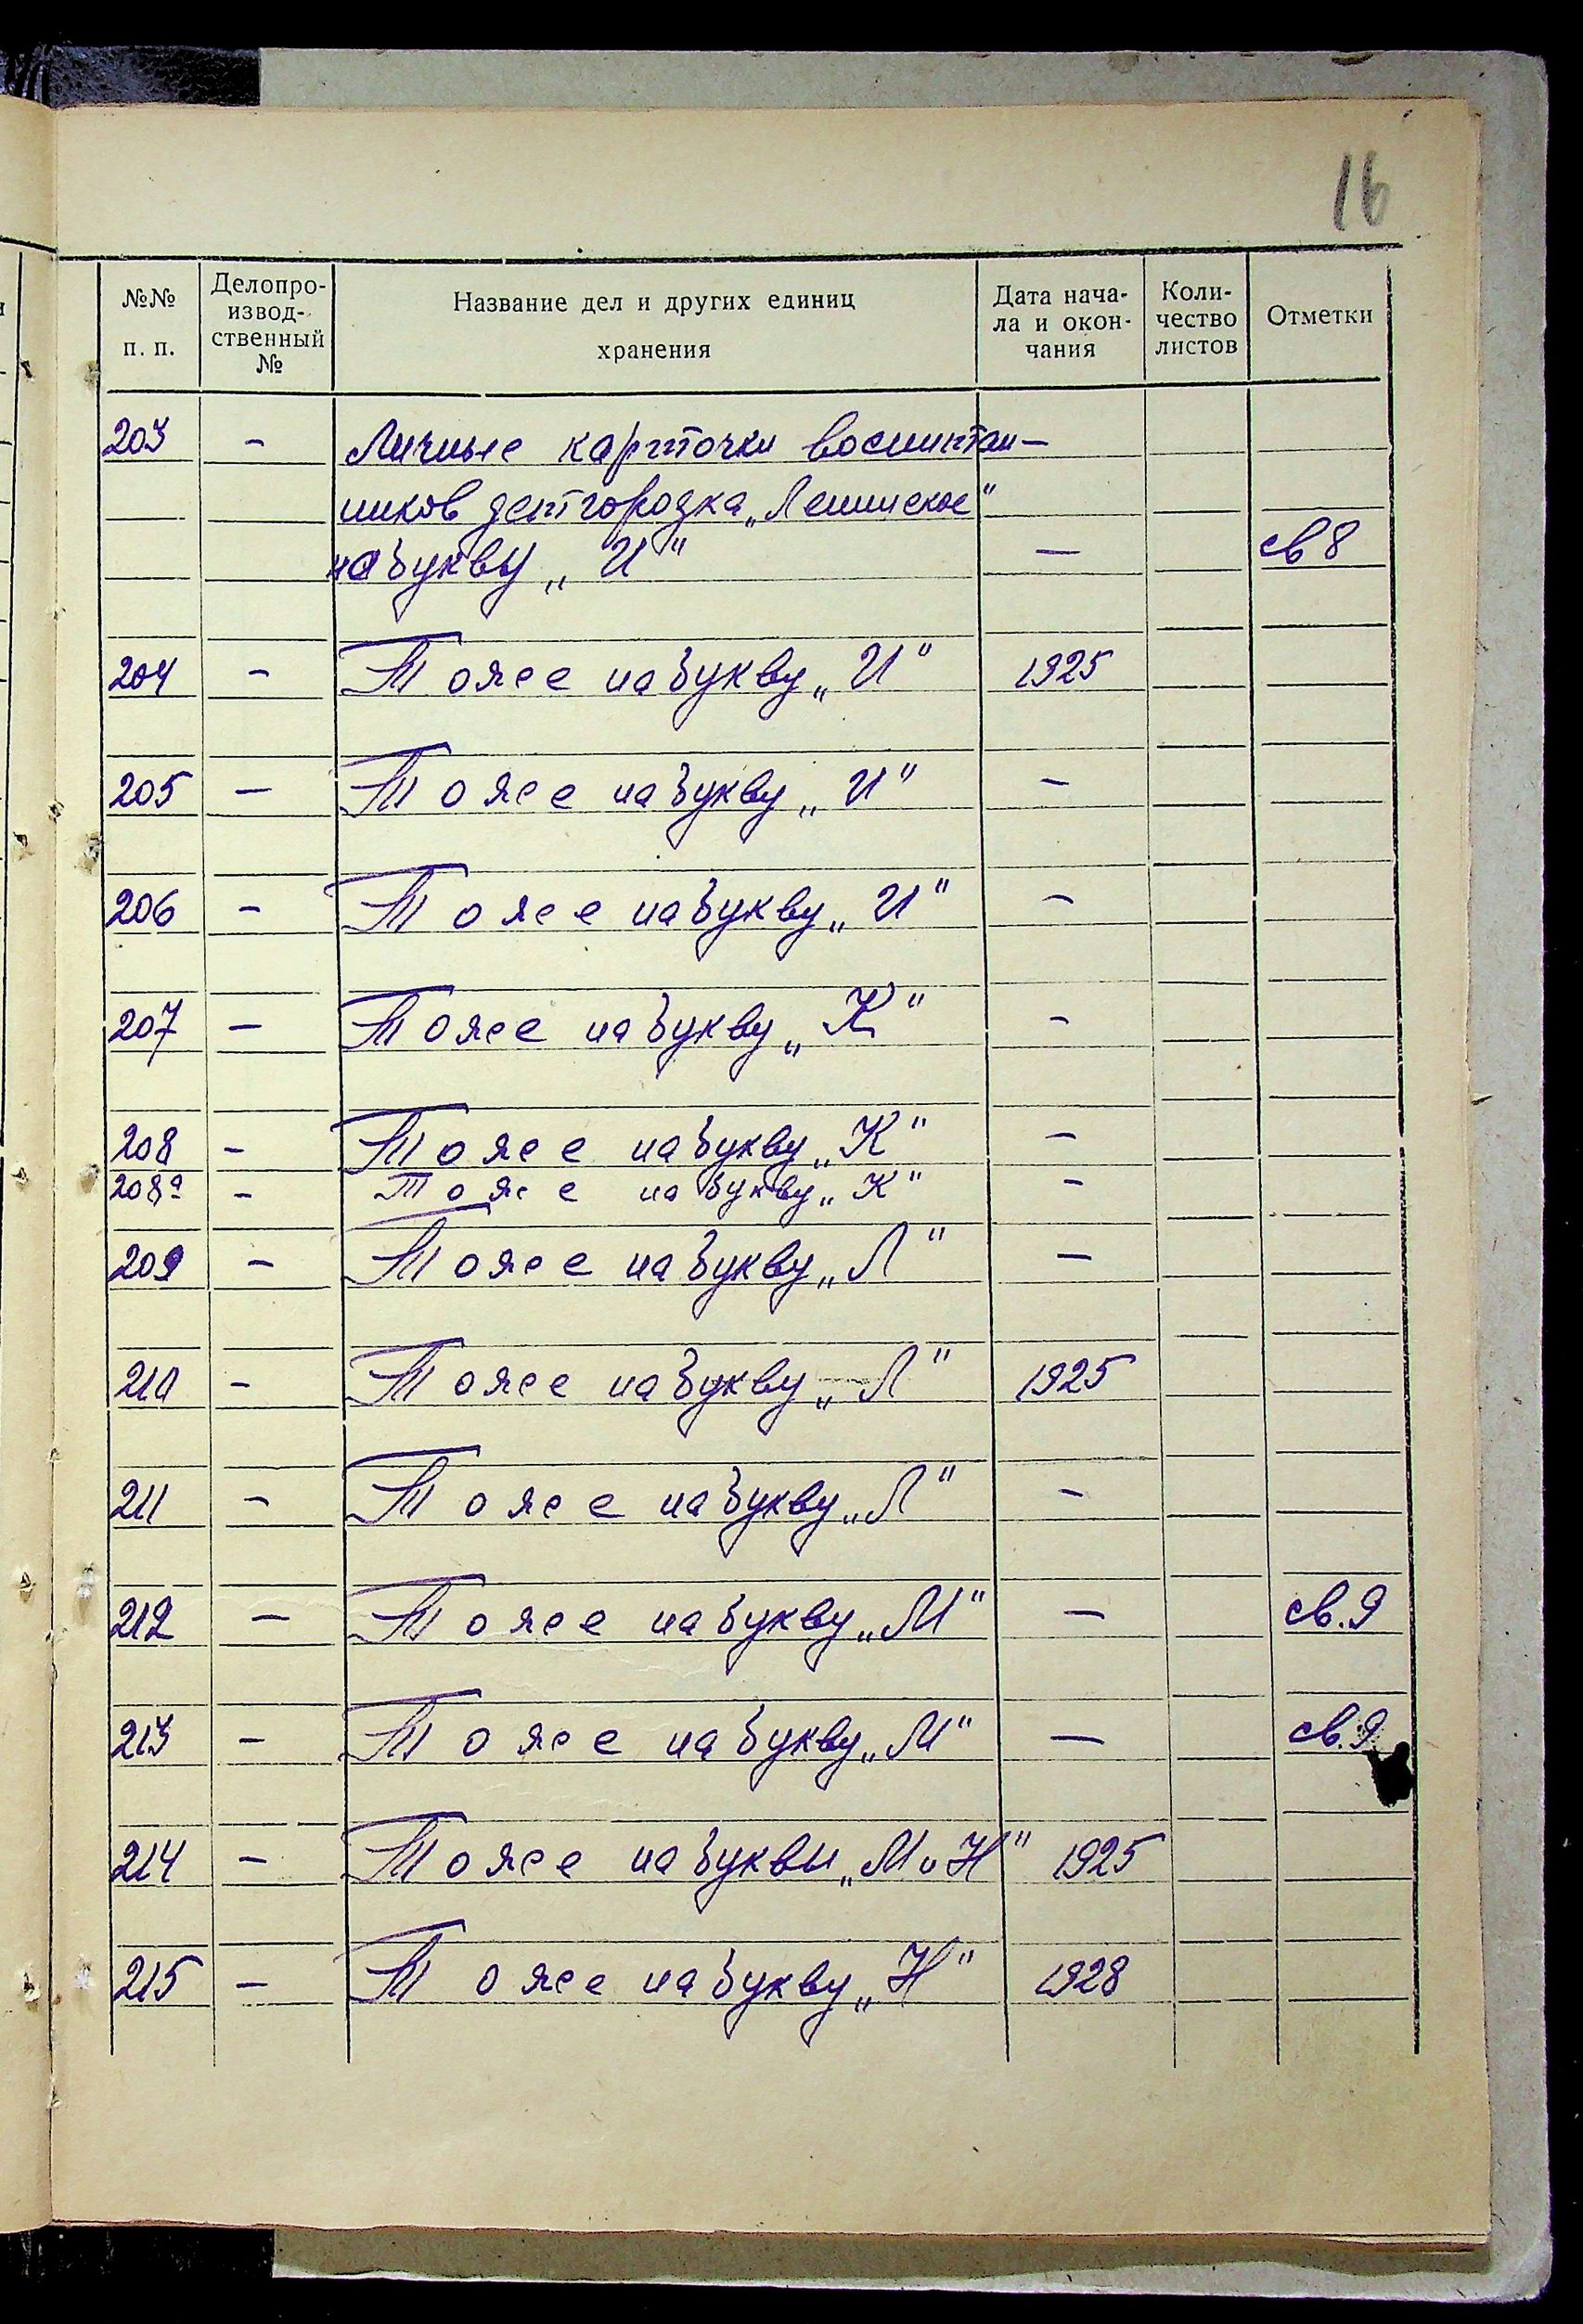 16
№№ п. п.
Делопро-
извод-
ственный
№
Название дел и других единиц
хранения
Дата нача-
ла и окон-
чания
Коли-
чество
листов
Отметки
203 – Личные карточки воспитан-
ников детгородка „Ленинское"
на букву „И" – св 8
204 – То же на букву „И" 1925
205 – То же на букву „И" –
206 – То же на букву „И" –
207 – То же на букву „К" –
208 – То же на букву „К" –
208а – То же на букву „К" –
209 – То же на букву „Л" –
210 – То же на букву „Л" 1925
211 – То же на букву „Л" –
212 – То же на букву „М" – св.9
213 – То же на букву „М" – св.9
214 – То же на буквы „М и Н" 1925
215 – То же на букву „Н" 1928